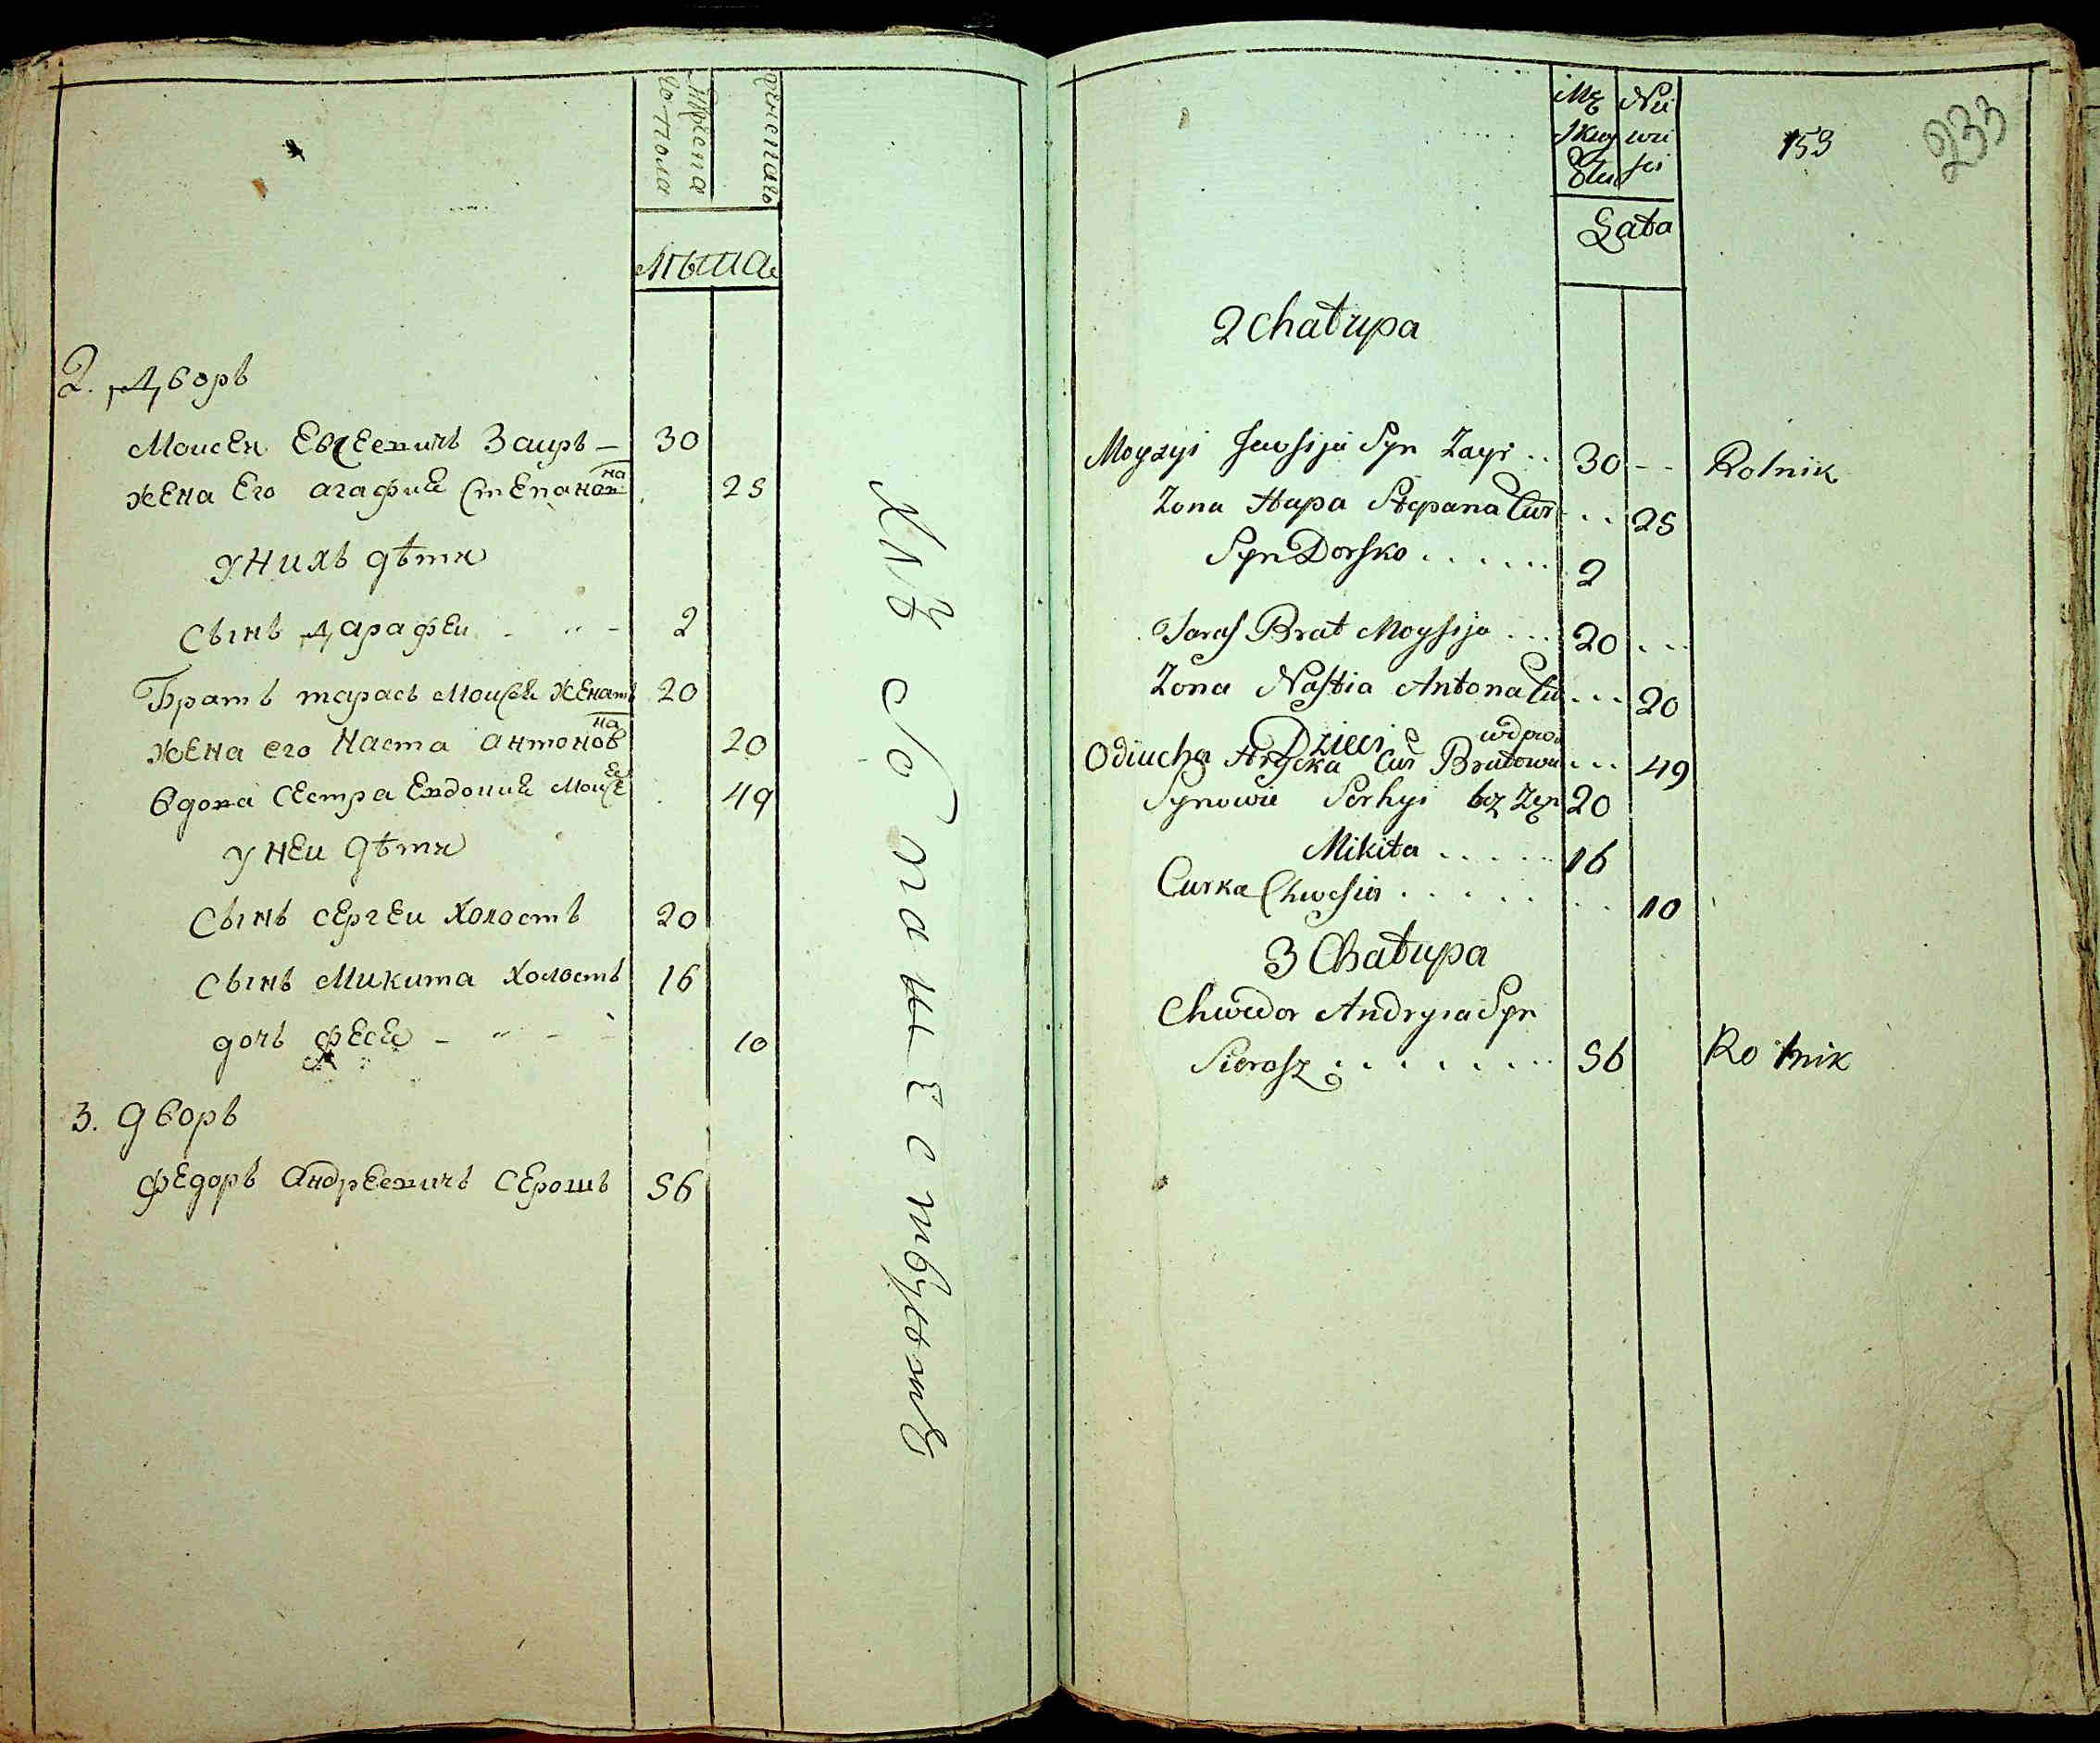 Мужеска
го пола
Женскаго
Лѣта
2. Дворъ
Моисей Евсеевичъ Заиръ — 30
жена Его агафия Степанов на 25
у нихъ дѣти
Сынъ дарафеи 2
Братъ тарасъ Моисея женатъ 20
жена его Наста антонов на 20
вдова Сестра Евдокия Моисея 49
у неи дѣти
Сынъ сергеи холостъ 20
Сынъ Микита холостъ 16
дочь фесе 10
3. дворъ
федоръ андреевичъ серошъ 56
Хлѣбопашествуетъ
Mę
skey
Płci
Nie
wie
ści
153
233
Lata
2 Chałupa
Moyzyi Jewsija Syn Zayr .. 30 -- Rolnik
Zona Hapa Stepana Cur .. 25
Syn Dorsko ...... 2
Taras Brat Moysija ... 20 ...
Zona Nastia Antona Cu ... 20
Dzieci wdowa
Odiucha Hrycka Cur Bratowa ... 49
Synowie Serhyi bez Żen 20
Mikita ..... 16
Curka Chwesia ...... 10
3 Chałupa
Chwedor Andryia Syn
Sierosz ....... 56 Rolnik